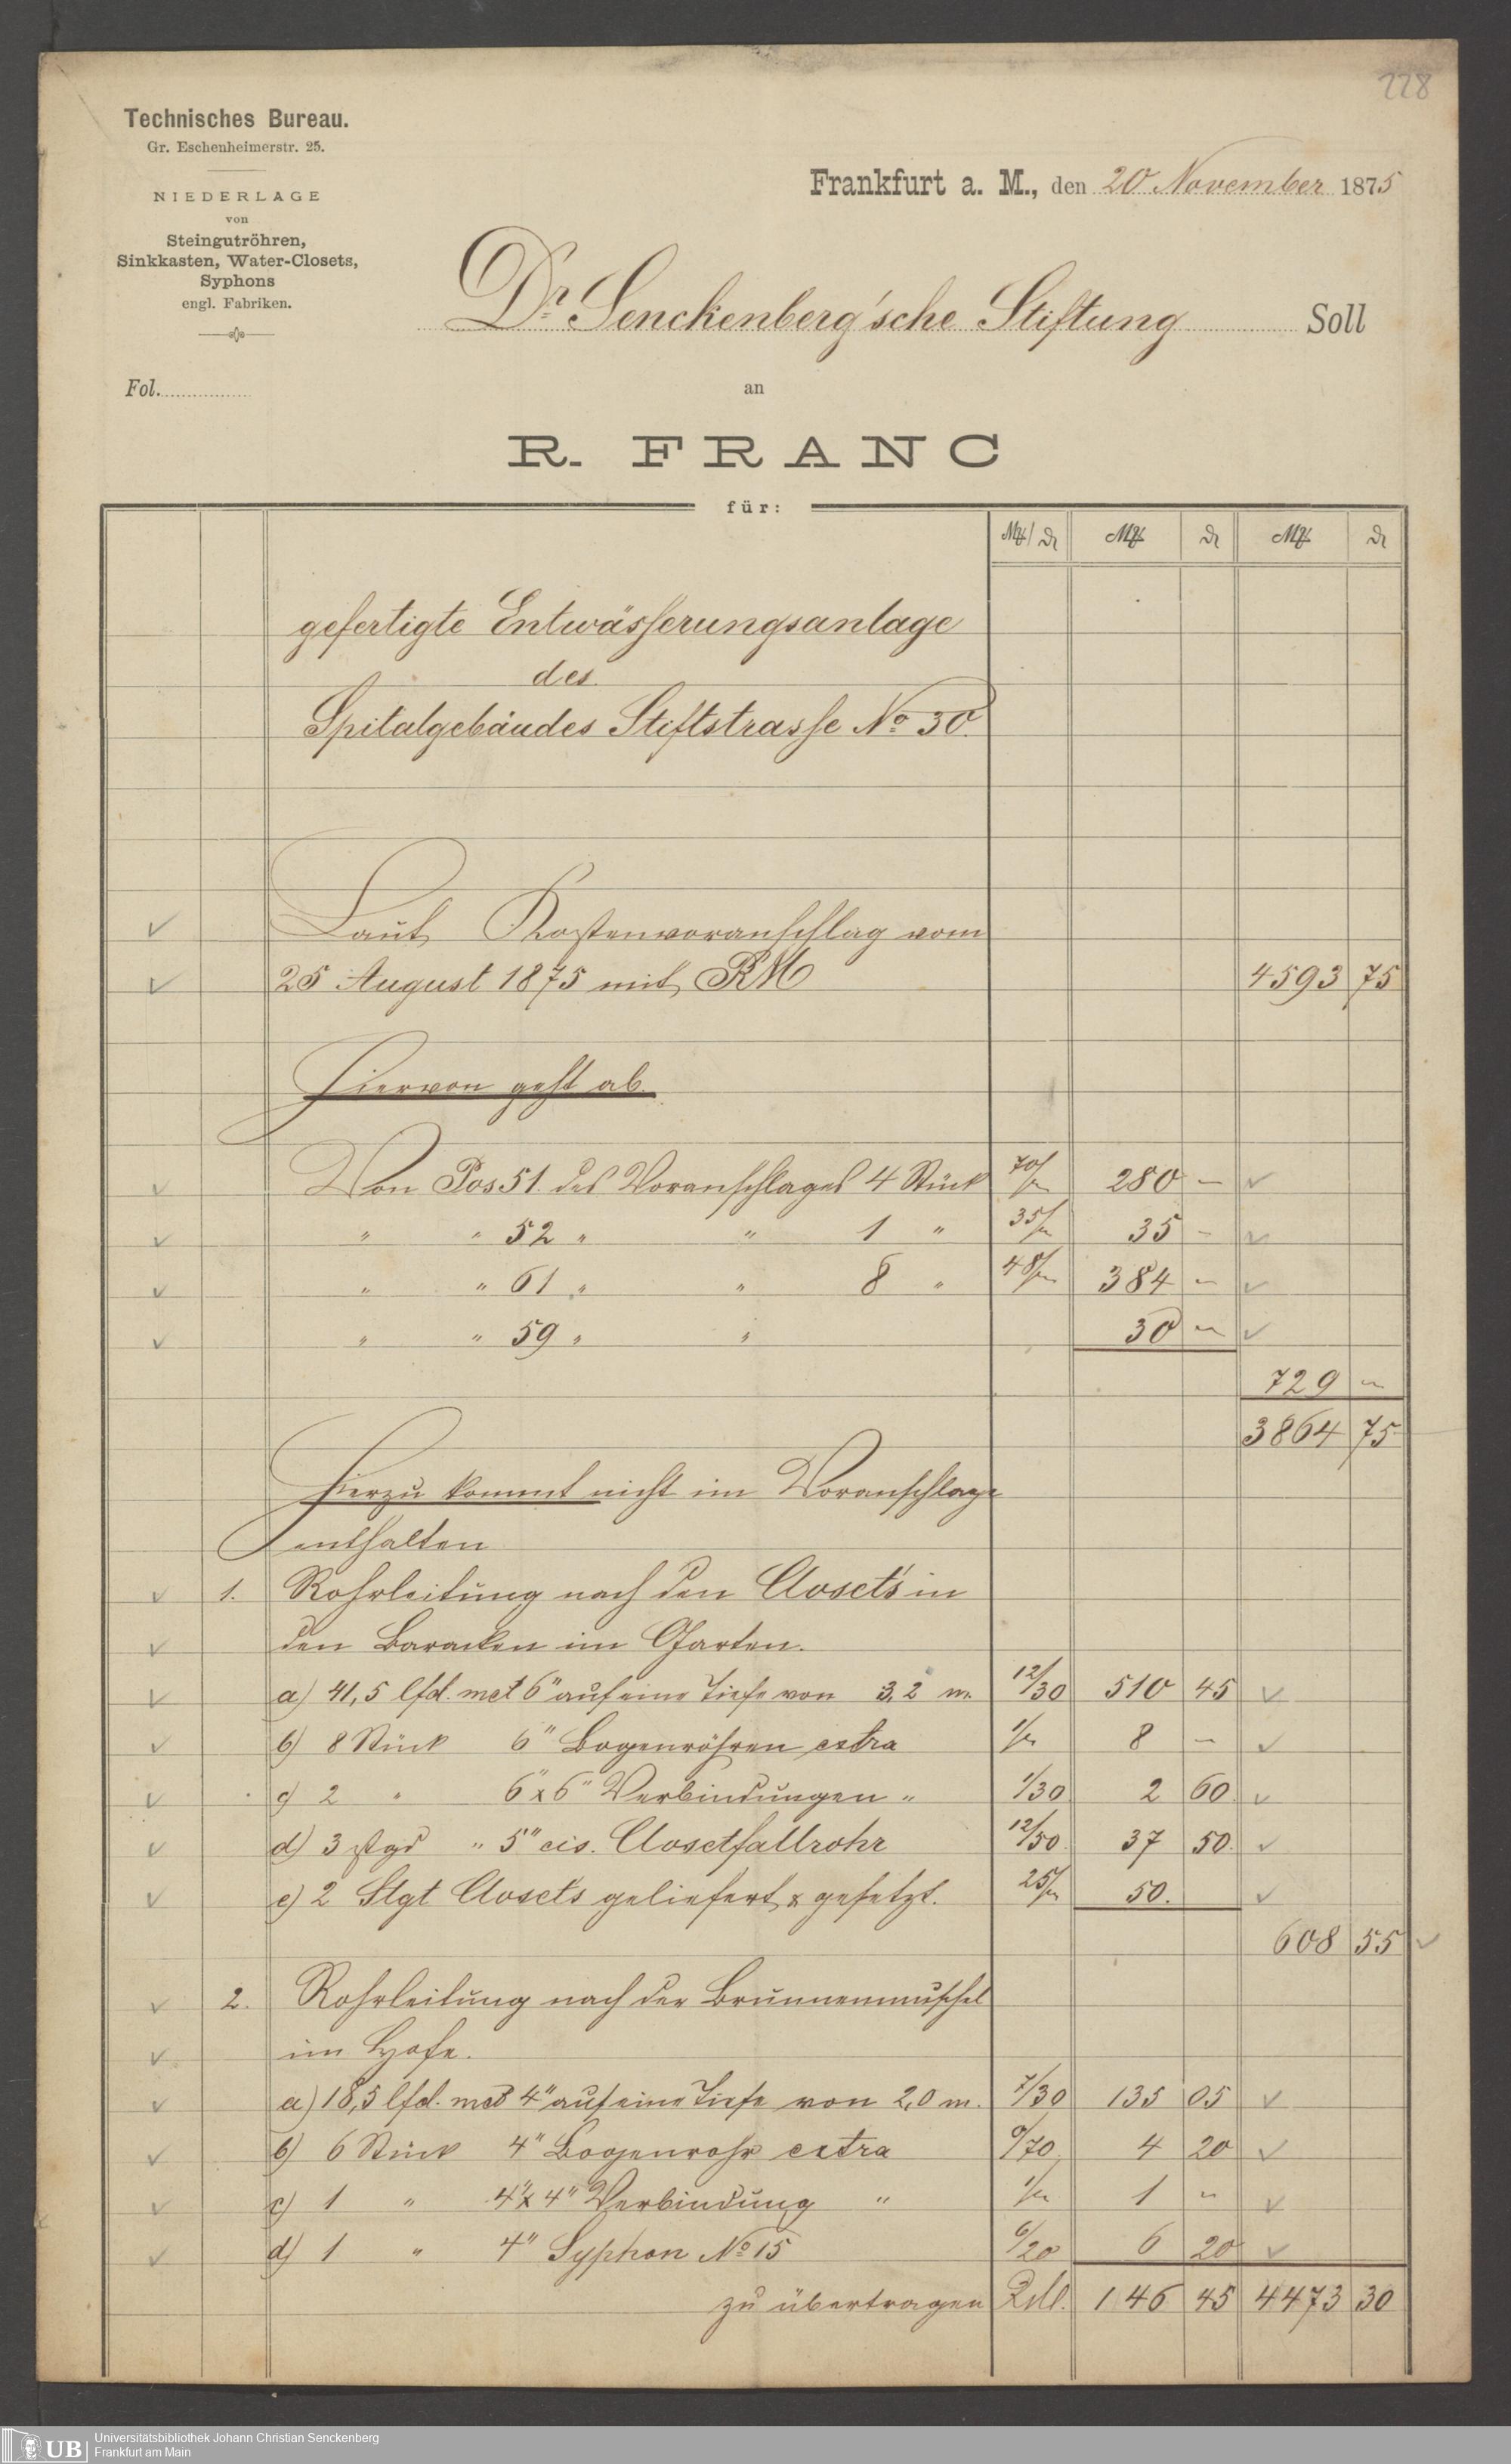 228
Technisches Bureau.
Gr. Eschenheimerstr. 25.
NIEDERLAGE
von
Steingutröhren,
Sinkkasten, Water-Closets,
Syphons
engl. Fabriken.
Frankfurt a. M., den 20 November 1875
Dr Senckenberg'sche Stiftung Soll
Fol.
an
R. FRANC
für:
gefertigte Entwässerungsanlage
des
Spitalgebäudes Stiftstrasse No 30.
Laut Kostenvoranschlag vom
25 August 1875 mit RM 4593 75
Hiervon geht ab.
Von Pos 51. des Voranschlages 4 Stück 70/ 280 –
" " 52 " " 1 " 35/ 35 –
" " 61 " " 8 " 48/ 384 –
" " 59 " " 30 –
729 –
3864 75
Hierzu kommt nicht im Voranschlage
enthalten
1. Rohrleitung nach den Closets in
den Baracken im Garten.
a) 41,5 lfd. met 6" auf eine Tiefe von 3,2 m. 12/30 510 45
b) 8 Stück 6" Bogenröhren extra 1/ 8 –
c) 2 " 6" x 6" Verbindungen " 1/30 2 60
d) 3 " 5" eis. Closetfallrohr 12/50 37 50
e) 2 Stgt Closets geliefert & gesetzt. 25/ 50.
608 55
2. Rohrleitung nach der Brunnenmuschel
im Hofe.
a) 18,5 lfd. met 4" auf eine Tiefe von 2,0 m. 7/30 135 05
b) 6 Stück 4" Bogenrohr extra 0/70 4 20
c) 1 " 4" x 4" Verbindung " 1/ 1 "
d) 1 " 4" Syphon No 15 6/20 6 20
zu übertragen RM. 146 45 4473 30
UB
Universitätsbibliothek Johann Christian Senckenberg
Frankfurt am Main